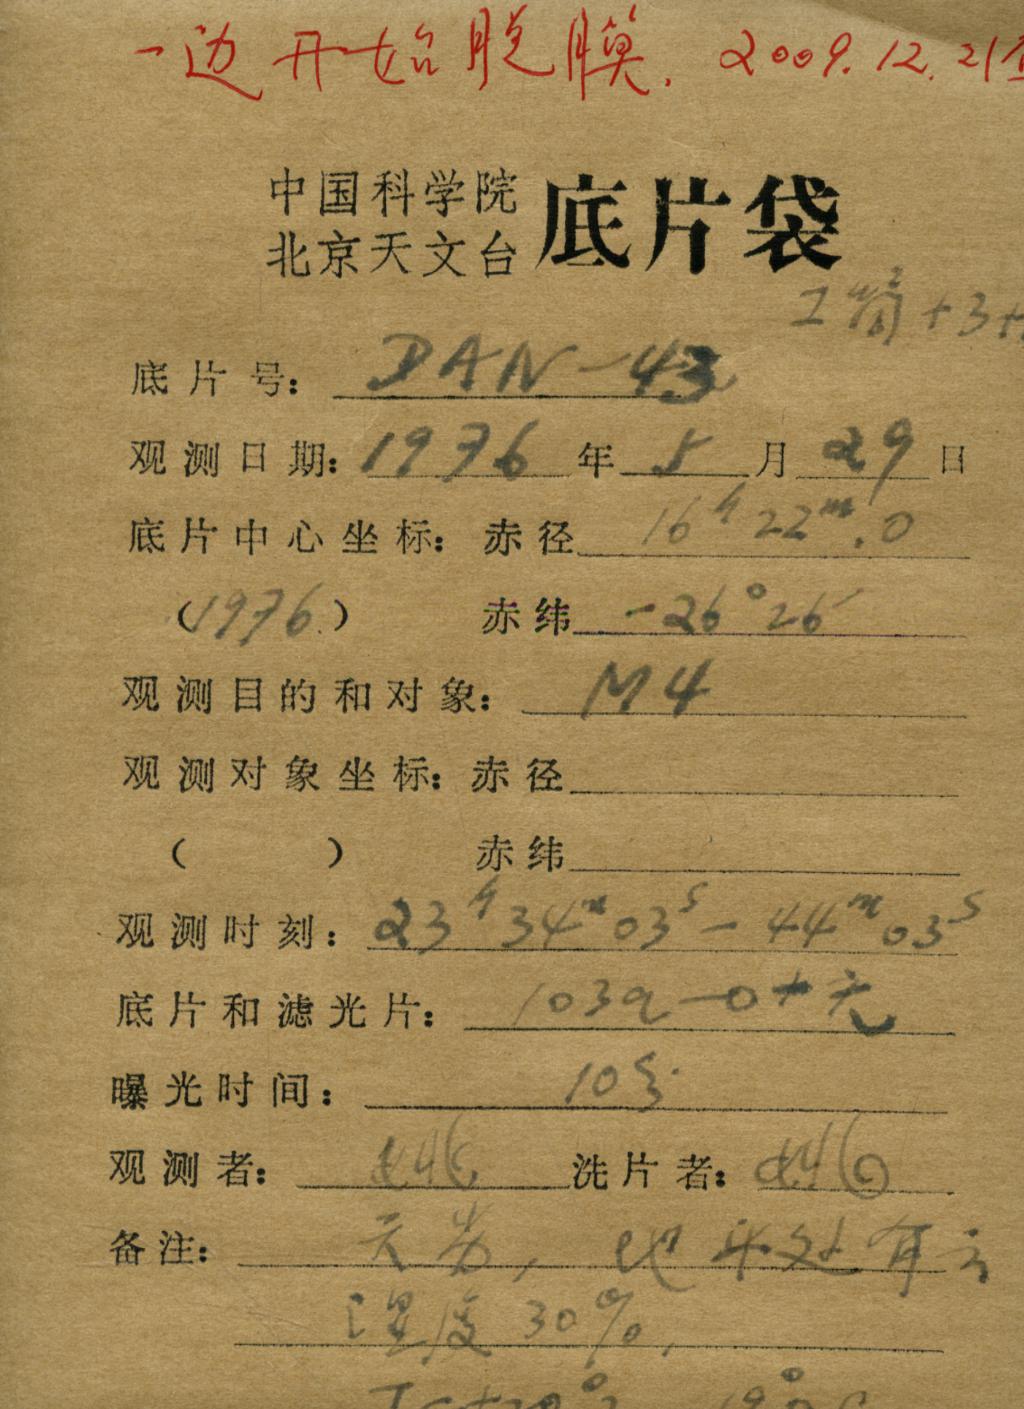 一边开始脱膜. 2009.12.21
中国科学院
北京天文台 底片袋
底片号: DAN-43
观测日期: 1976 年 5 月 29 日
底片中心坐标: 赤径 16h 22m.0
(1976.) 赤纬 -26°26′
观测目的和对象: M4
观测对象坐标: 赤径
( ) 赤纬
观测时刻: 23h34m03s - 44m03s
底片和滤光片: 103a-O+无
曝光时间: 10分
观测者: 洗片者:
备注: 地平处有云
湿度 30%,